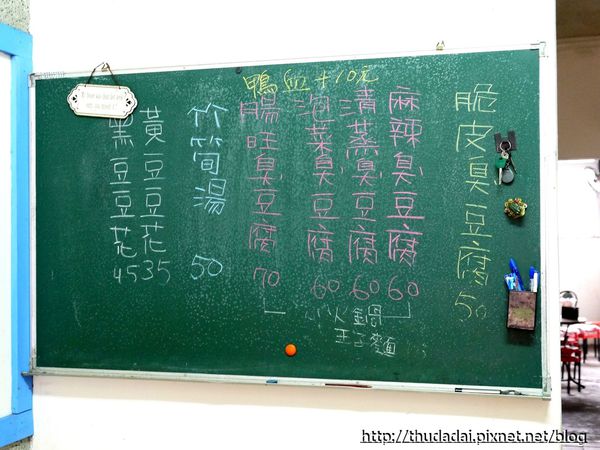 鴨血+10元
脆皮臭豆腐 50
麻辣臭豆腐 60
清蒸臭豆腐 60
泡菜臭豆腐 60
腸旺臭豆腐 70
小火鍋
王子麵
竹筒湯 50
黃豆豆花 35
黑豆豆花 45
http://thudadai.pixnet.net/blog